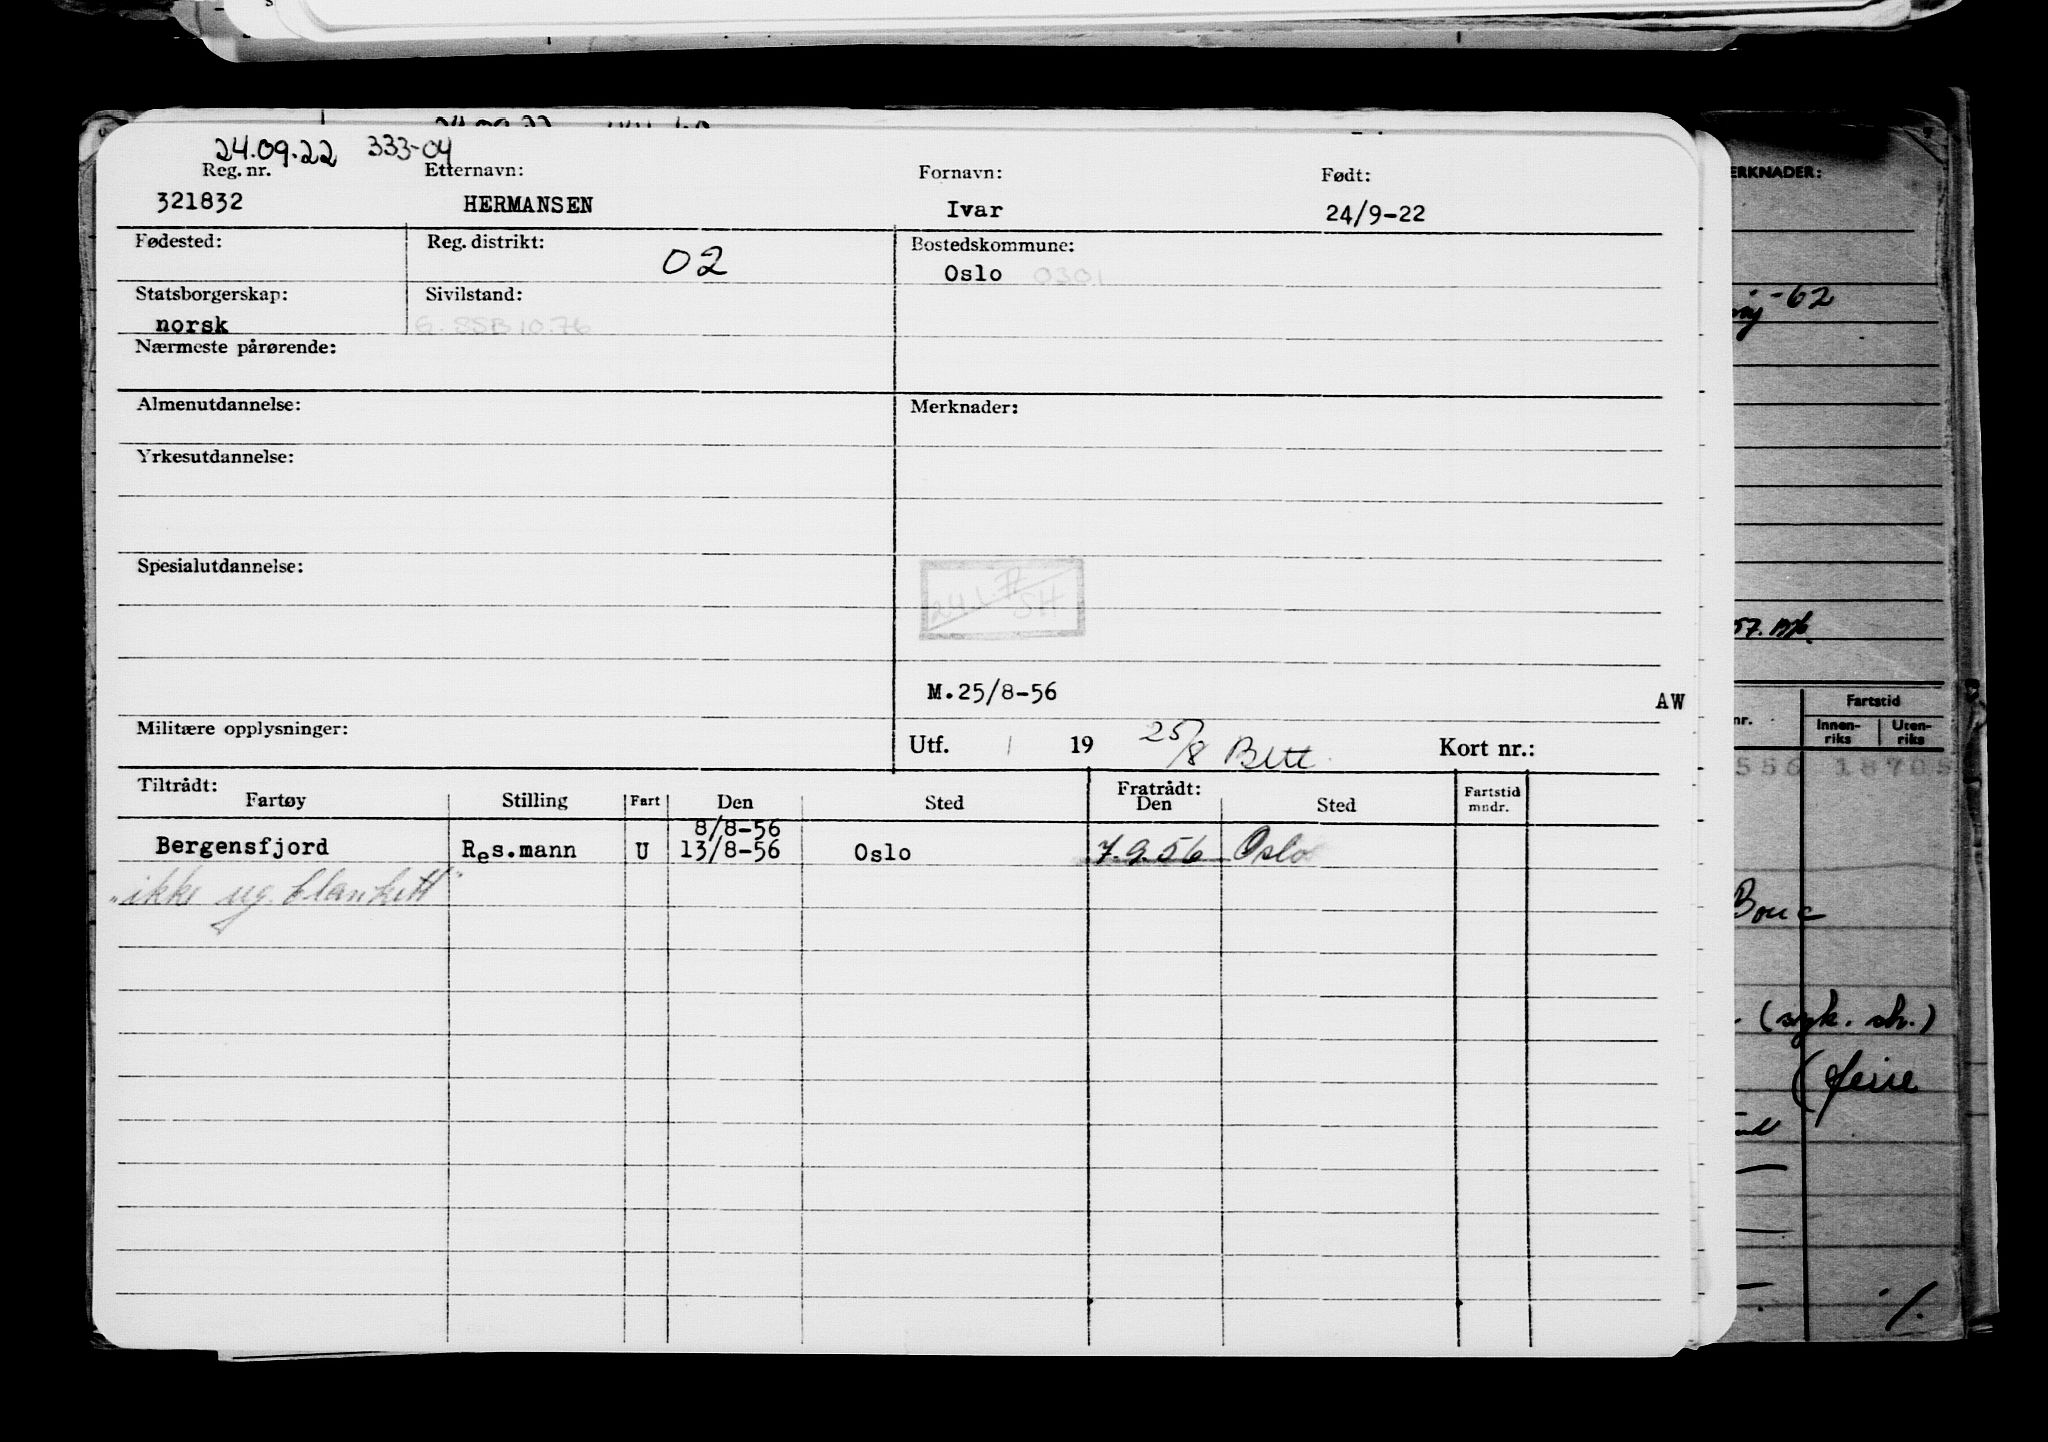 24.09.22 333-04
Reg. nr. Etternavn: Fornavn: Født:
321832 HERMANSEN Ivar 24/9-22
Fødested: Reg. distrikt: 02 Bostedskommune:
Oslo 0301
Statsborgerskap: Sivilstand:
norsk G. SSB 10.76
Nærmeste pårørende:
Almenutdannelse: Merknader:
Yrkesutdannelse:
Spesialutdannelse:
SH
M.25/8-56 AW
Militære opplysninger: Utf. 19 25/8 Kort nr.:
Tiltrådt: Fratrådt:
Fartøy Stilling Fart Den Sted Den Sted Fartstid mndr.
8/8-56
Bergensfjord Res.mann U 13/8-56 Oslo 7.9.56 Oslo
"ikke ug. blankett"
ERKNADER:
-62
57.
nr. Fartstid
Innen-riks Uten-riks
556 18705
Bouc
(syk. sh.)